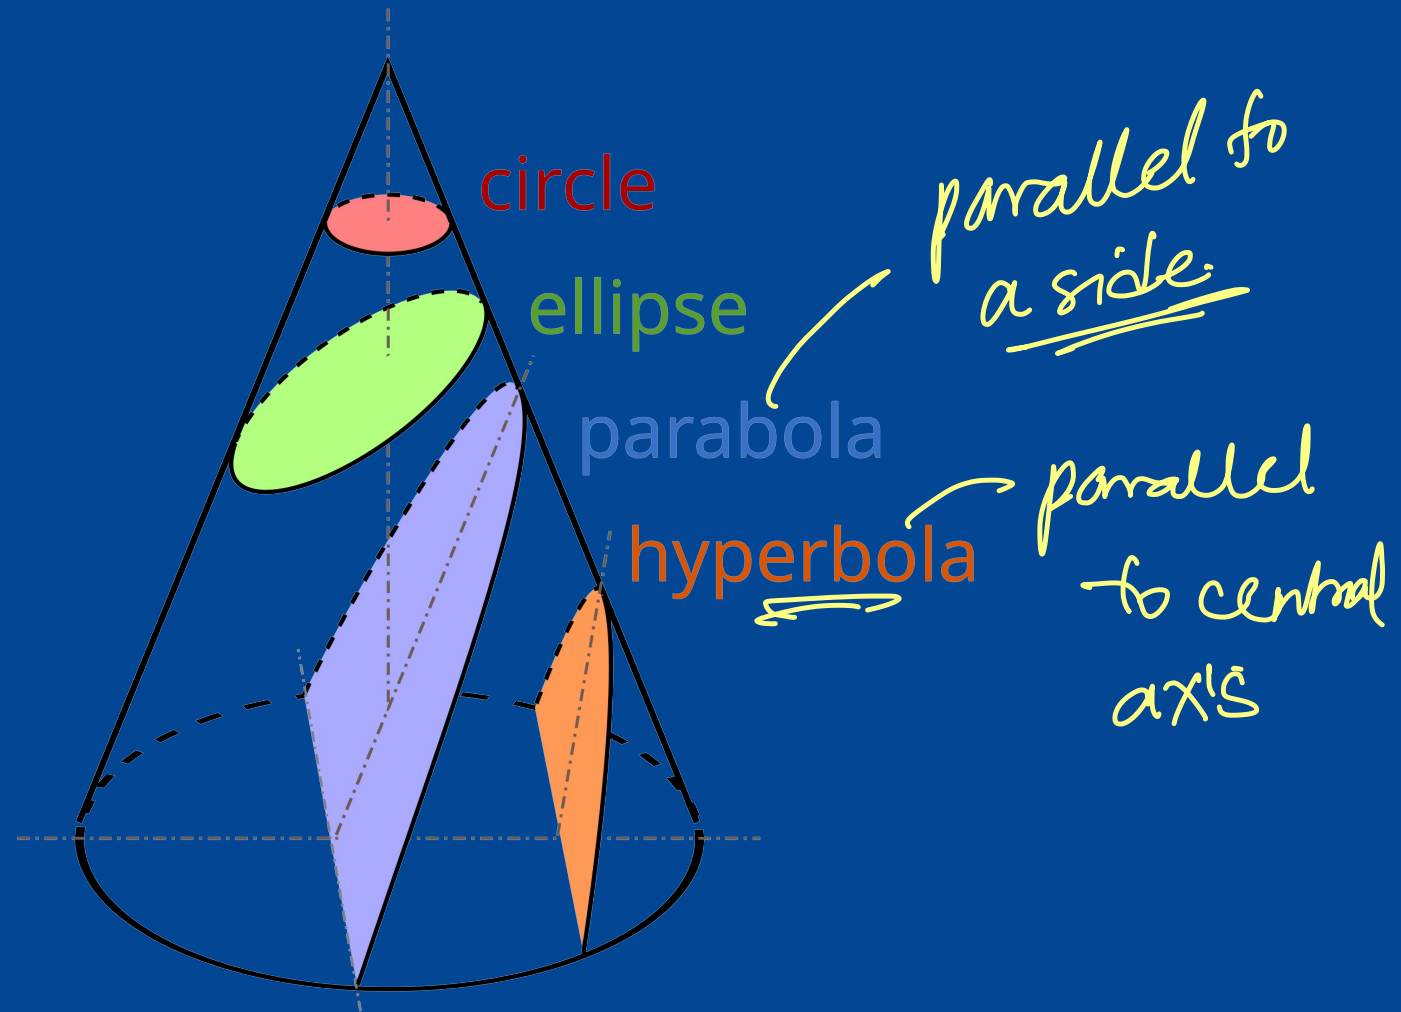 circle
ellipse
parabola
hyperbola
parallel to
a side.
parallel
to central
axis